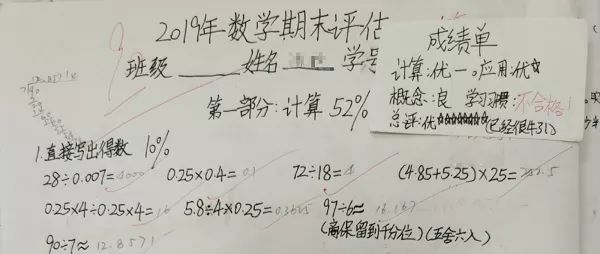 2019年数学期末评估
班级____姓名____学号
第一部分:计算 52%
成绩单
计算:优一。应用:优☆
概念:良 学习习惯:不合格!
总评:优☆☆☆☆☆☆☆(已经很牛了!)
1.直接写出得数 10%
28÷0.007=4000 0.25×0.4=0.1 72÷18=4 (4.85+5.25)×25=252.5
0.25×4÷0.25×4=16 5.8÷4×0.25=0.3625 97÷6≈16.167
(商保留到千分位)(五舍六入)
90÷7≈12.8571